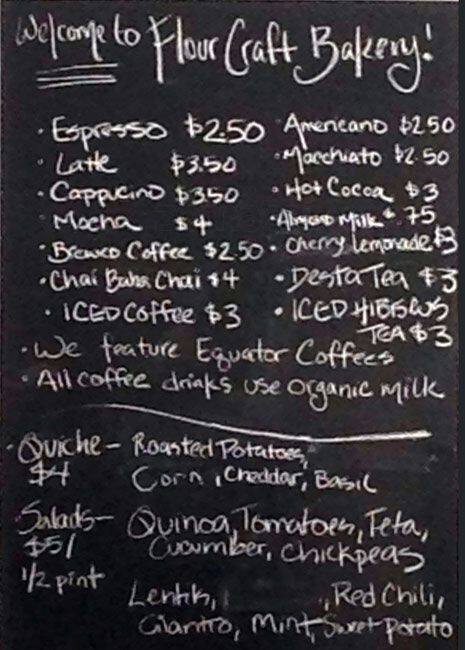 Welcome to Flour Craft Bakery!
· Espresso $2.50 · Americano $2.50
· Latte $3.50 · Macchiato $2.50
· Cappucino $3.50 · Hot Cocoa $3
· Mocha $4 · Almond Milk $.75
· Brewed Coffee $2.50 · Cherry Lemonade $3
· Chai Baba Chai $4 · Desta Tea $3
· ICED Coffee $3 · ICED HIBISCUS
TEA $3
· We feature Equator Coffees
· All coffee drinks use organic milk
· Quiche – Roasted Potatoes,
$4 Corn, Cheddar, Basil
· Salads – Quinoa, Tomatoes, Feta,
$5/ Cucumber, Chickpeas
1/2 pint
Lentils, , Red Chili,
Cilantro, Mint, Sweet Potato